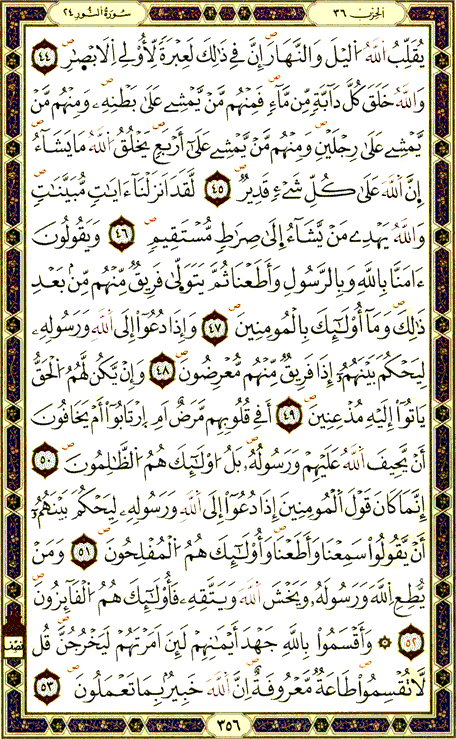 الحزب ٣٦
سُورَةُ النُّورِ ٢٤
يُقَلِّبُ اللَّهُ اُلَيْلَ وَالنَّهَارَۖ إِنَّ فِي ذَٰلِكَ لَعِبْرَةً لِّأُوْلِي اِلَابْصَٰرِۖ ٤٤
وَاللَّهُ خَلَقَ كُلَّ دَآبَّةٍ مِّن مَّآءٍۖ فَمِنْهُم مَّنْ يَّمْشِے عَلَىٰ بَطْنِهِۦۖ وَمِنْهُم مَّنْ
يَّمْشِے عَلَىٰ رِجْلَيْنِۖ وَمِنْهُم مَّنْ يَّمْشِے عَلَىٰٓ أَرْبَعٍۖ يَخْلُقُ اُللَّهُ مَا يَشَآءُۖ
إِنَّ اَللَّهَ عَلَىٰ كُلِّ شَےْءٍ قَدِيرٌۖ ٤٥ لَّقَدَ اَنزَلْنَآ ءَايَٰتٍ مُّبَيَّنَٰتٍۖ
وَاللَّهُ يَهْدِے مَنْ يَّشَآءُ اِلَىٰ صِرَٰطٍ مُّسْتَقِيمٍۖ ٤٦ وَيَقُولُونَ
ءَامَنَّا بِاللَّهِ وَبِالرَّسُولِ وَأَطَعْنَا ثُمَّ يَتَوَلَّىٰ فَرِيقٌ مِّنْهُم مِّنۢ بَعْدِ
ذَٰلِكَۖ وَمَآ أُوْلَٰٓئِكَ بِالْمُومِنِينَۖ ٤٧ وَإِذَا دُعُوٓاْ إِلَى اَللَّهِ وَرَسُولِهِۦ
لِيَحْكُمَ بَيْنَهُمُۥٓ إِذَا فَرِيقٌ مِّنْهُم مُّعْرِضُونَۖ ٤٨ وَإِنْ يَّكُن لَّهُمُ اُلْحَقُّ
يَاتُوٓاْ إِلَيْهِ مُذْعِنِينَۖ ٤٩ أَفِي قُلُوبِهِم مَّرَضٌ اَمِ اِرْتَابُوٓاْ أَمْ يَخَافُونَ
أَنْ يَّحِيفَ اَللَّهُ عَلَيْهِمْ وَرَسُولُهُۥۖ بَلُ اوْلَٰٓئِكَ هُمُ اُلظَّٰلِمُونَۖ ٥٠
إِنَّمَا كَانَ قَوْلَ اَلْمُومِنِينَ إِذَا دُعُوٓاْ إِلَى اَللَّهِ وَرَسُولِهِۦ لِيَحْكُمَ بَيْنَهُمُۥٓ
أَنْ يَّقُولُواْ سَمِعْنَا وَأَطَعْنَاۖ وَأُوْلَٰٓئِكَ هُمُ اُلْمُفْلِحُونَۖ ٥١ وَمَنْ
يُّطِعِ اِللَّهَ وَرَسُولَهُۥ وَيَخْشَ اَللَّهَ وَيَتَّقِهِۦ فَأُوْلَٰٓئِكَ هُمُ اُلْفَآئِزُونَۖ
٥٢ ۞ وَأَقْسَمُواْ بِاللَّهِ جَهْدَ أَيْمَٰنِهِمْ لَئِنَ اَمَرْتَهُمْ لَيَخْرُجُنَّۖ قُل
لَّا تُقْسِمُواْۖ طَاعَةٌ مَّعْرُوفَةٌۖ اِنَّ اَللَّهَ خَبِيرٌۢ بِمَا تَعْمَلُونَۖ ٥٣
نصف
٣٥٦